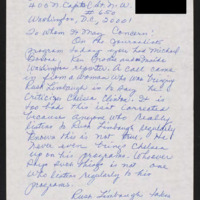 400 N. Capitol St. N.W.
# 650
Washington, D.C., 20001
To whom It May Concern:
On the Journalists
program Friday were Michael
Barone, Ken Bode and
Washington reporter. A call came
in from a woman who was
Rush Limbaugh is to say he
Criticizes Chelsea Clinton. It is
too bad this isn't corrected
because anyone who really
listens to Rush Limbaugh regularly
knows this is not true. He
never even brings Chelsea
up on his programs. Whoever
says such things is not one
who listens regularly to his
programs.
Rush Limbaugh takes